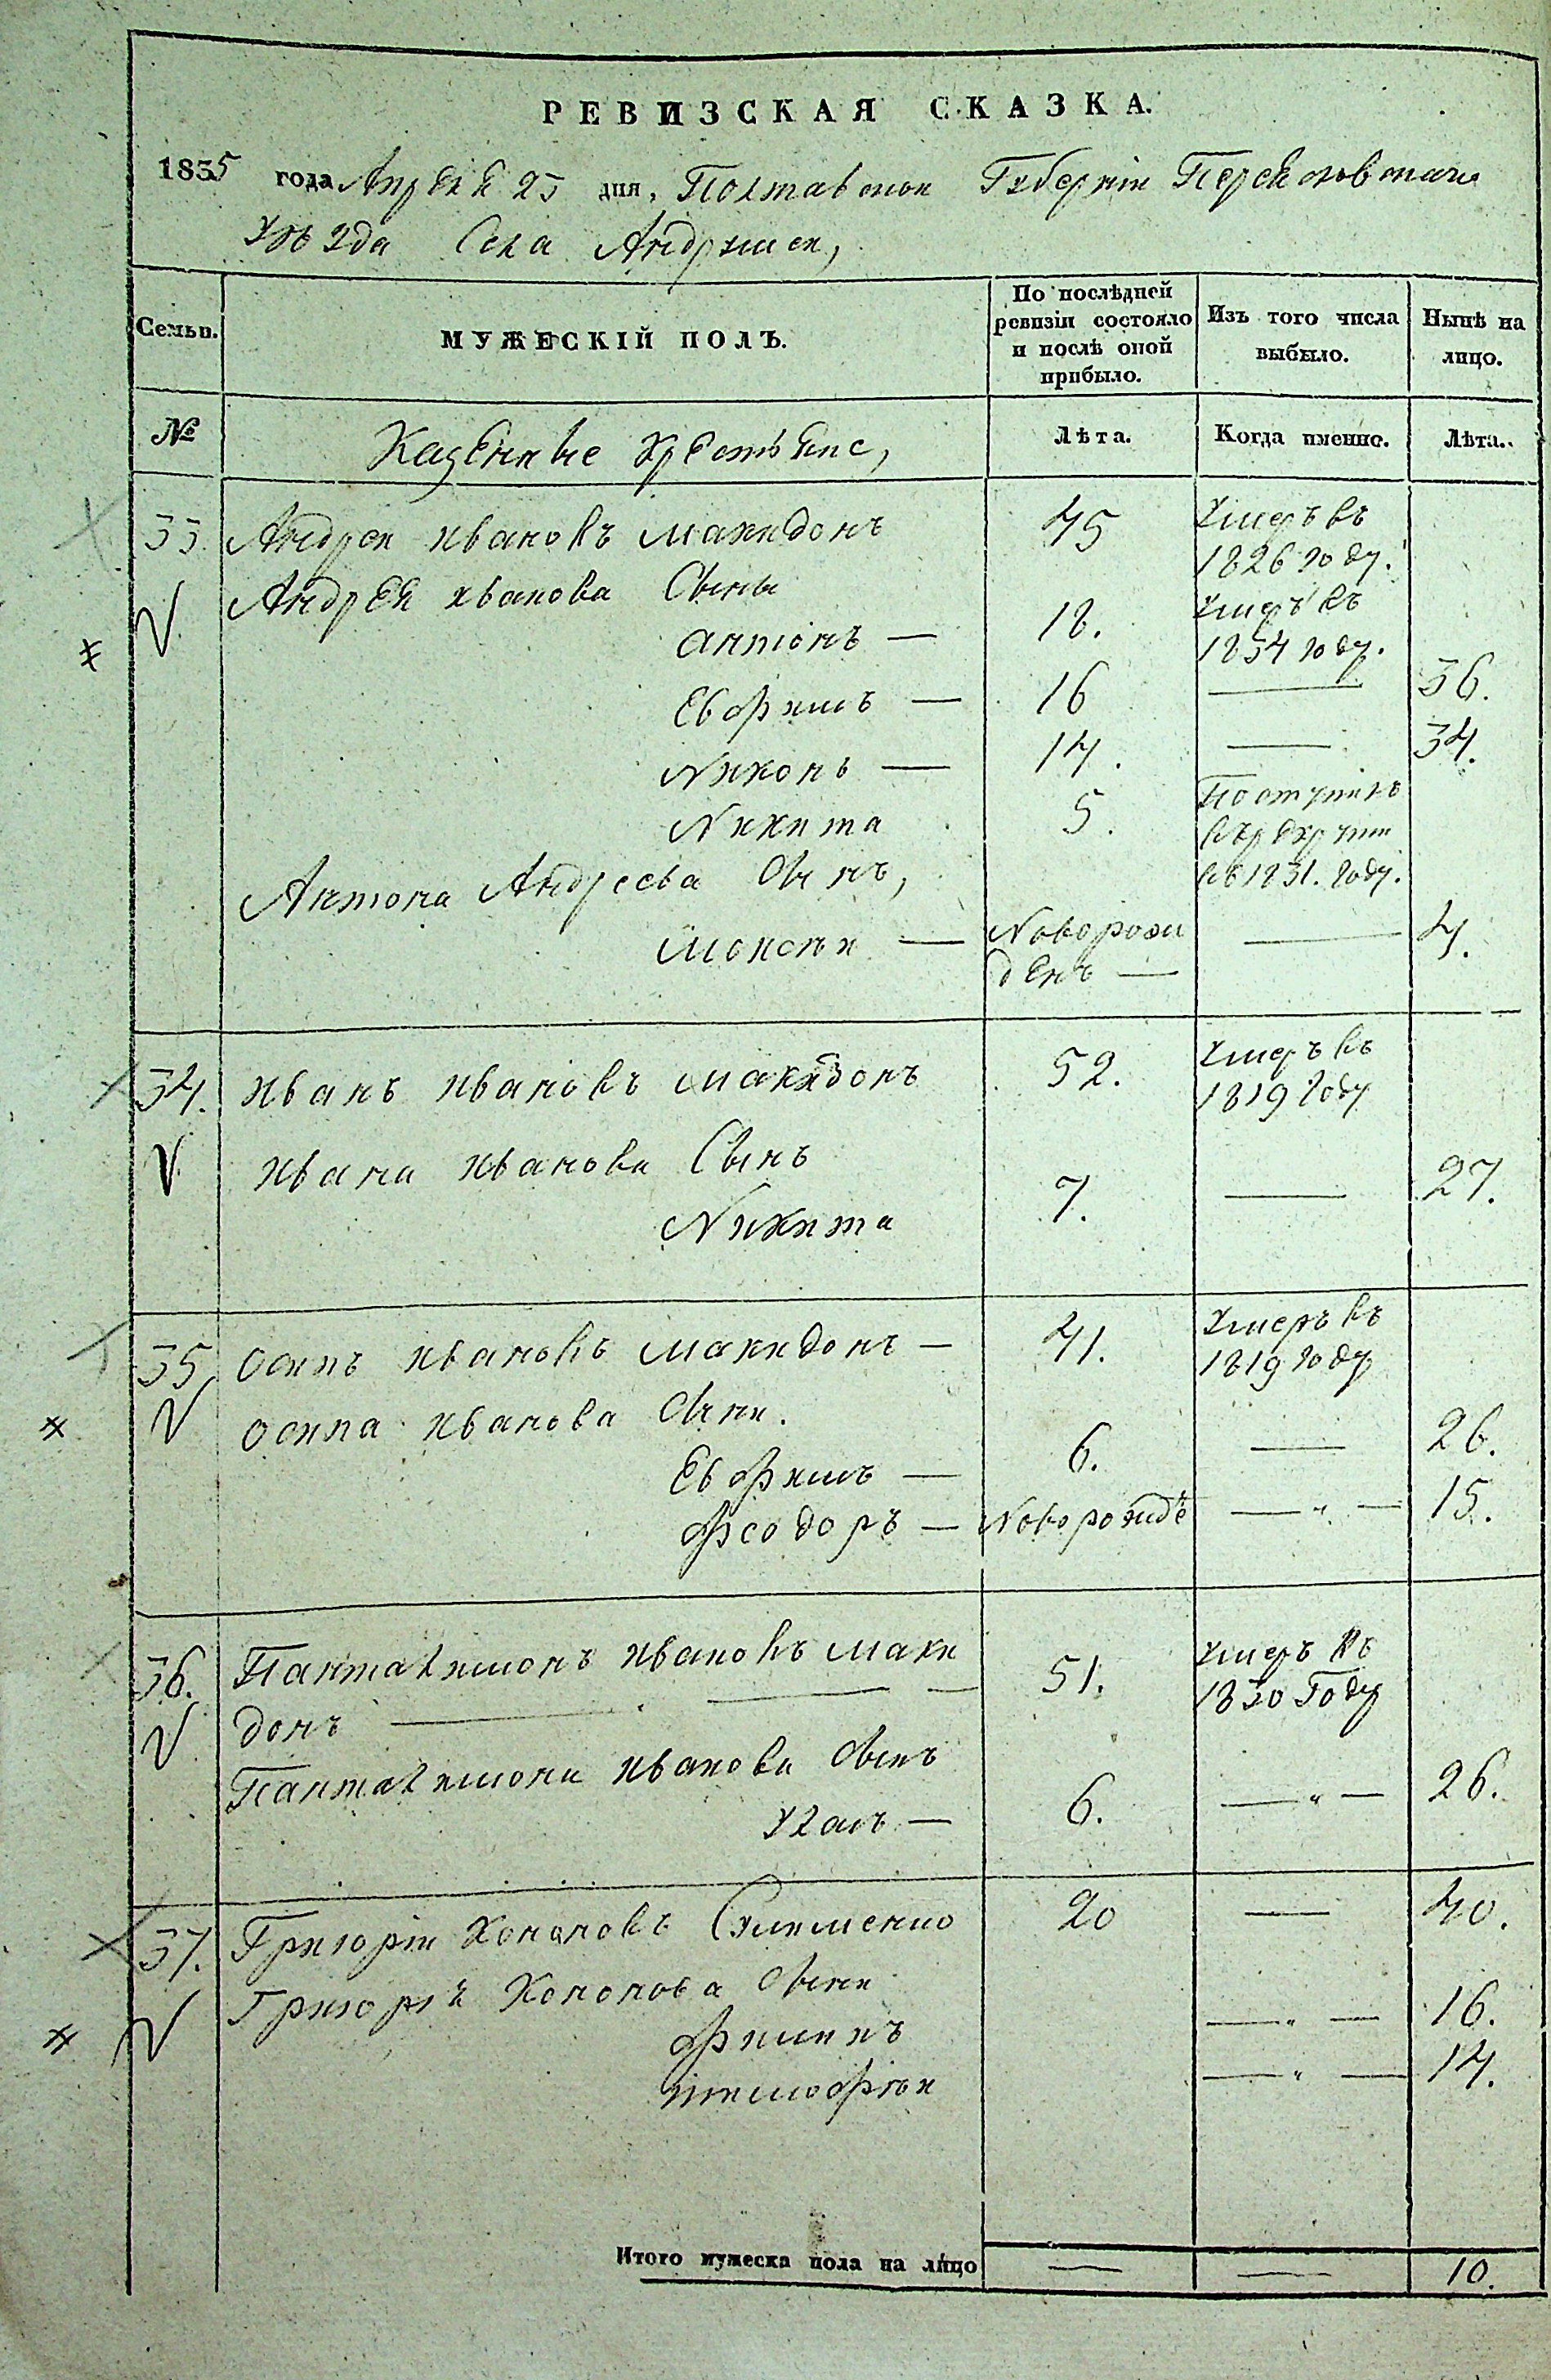 РЕВИЗСКАЯ СКАЗКА.
1835 года Апреля 25 дня, Полтавской Губернiи Переяславскаго
Уѣзда Села Андрушек,
Семьи.
МУЖЕСКІЙ ПОЛЪ.
По послѣдней ревизіи состояло и послѣ оной прибыло.
Изъ того числа выбыло.
Нынѣ на лицо.
№
Казенные Крестьяне,
Лѣта.
Когда именно.
Лѣта.
33 Андрей Ивановъ Македонъ 45 Умеръ въ 1826 году.
Андрея Иванова Сыны
Антонъ — 18. Умеръ въ 1834 году.
Евфимъ — 16 — 36.
Никонъ — 14. — 34.
Никита 5. Поступилъ въ рекруты въ 1831. году.
Антона Андреева Сынъ,
Моисѣй — Новорожденъ — — 4.
34. Иванъ Ивановъ Македонъ 52. Умеръ въ 1819 году
Ивана Иванова Сынъ
Никита 7. — 27.
35 Осипъ Ивановъ Македонъ — 41. Умеръ въ 1819 году
Осипа Иванова Сыны.
Евфимъ — 6. — 26.
Феодоръ — Новорожде — " — 15.
36. Пантелимонъ Ивановъ Маки
донъ — 51. Умеръ въ 1830 Году
Пантелимона Иванова Сынъ
Уланъ — 6. — " — 26.
37. Григорiй Кононовъ 20 — 40.
Григорiя Кононова Сыны
Филипъ — " — 16.
Тимофѣй — " — 14.
Итого мужеска пола на лицо — — 10.